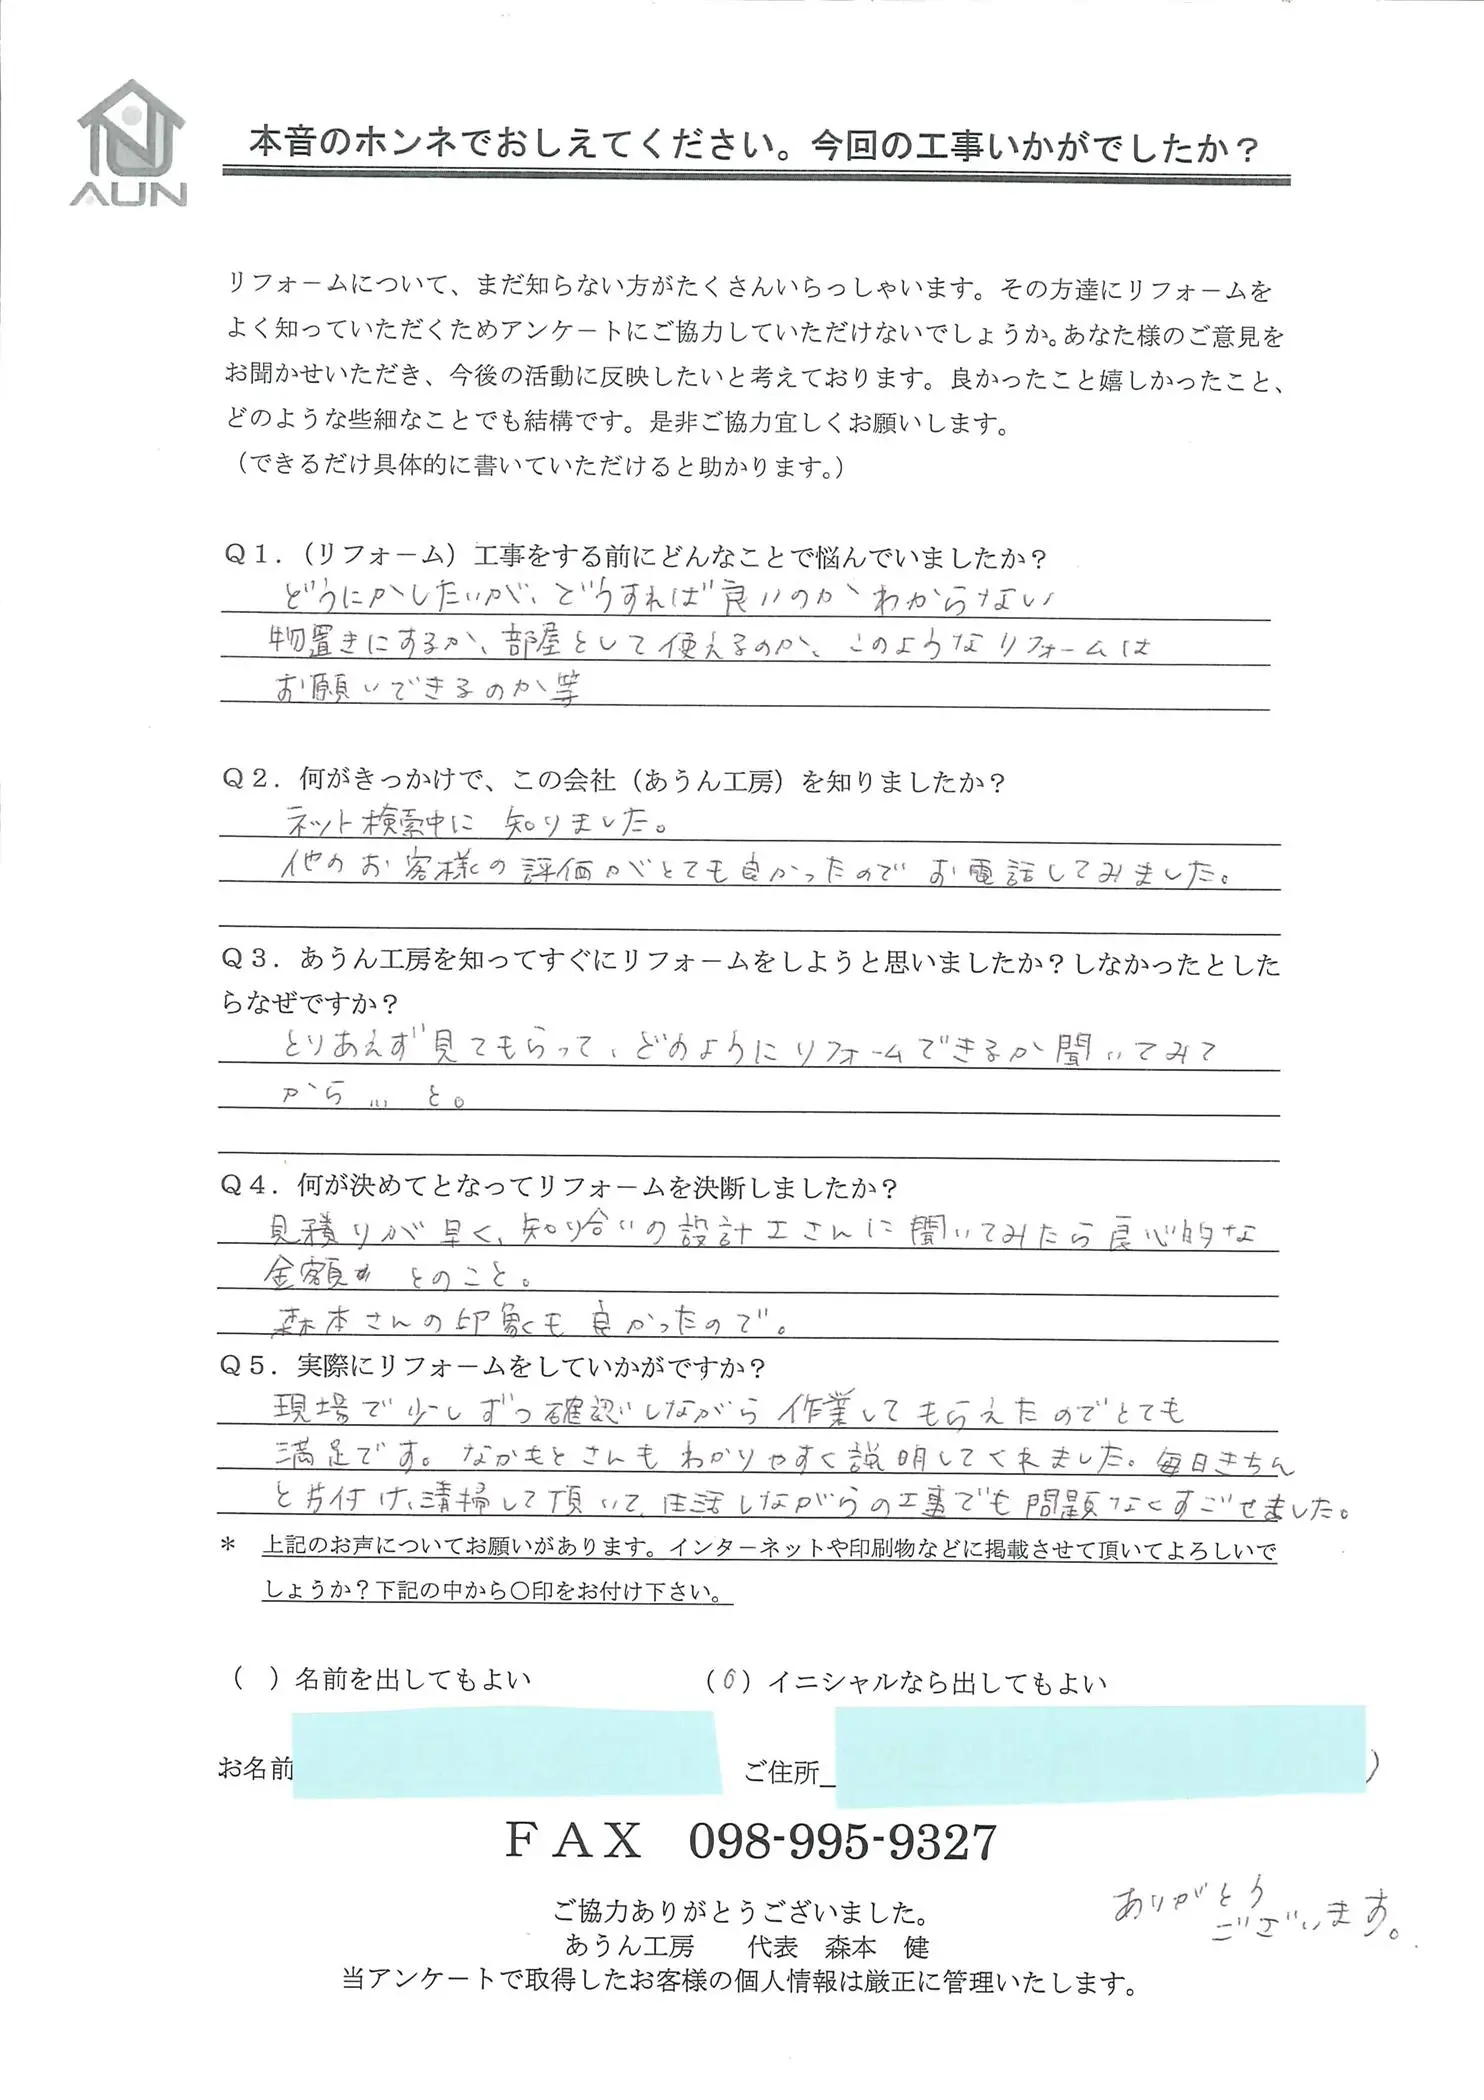 AUN
本音のホンネでおしえてください。今回の工事いかがでしたか？
リフォームについて、まだ知らない方がたくさんいらっしゃいます。その方達にリフォームを
よく知っていただくためアンケートにご協力していただけないでしょうか。あなた様のご意見を
お聞かせいただき、今後の活動に反映したいと考えております。良かったこと嬉しかったこと、
どのような些細なことでも結構です。是非ご協力宜しくお願いします。
（できるだけ具体的に書いていただけると助かります。）
Ｑ１．（リフォーム）工事をする前にどんなことで悩んでいましたか？
どうにかしたいが、どうすれば良いのかわからない
物置きにするか、部屋として使えるのか、このようなリフォームは
お願いできるのか等
Ｑ２．何がきっかけで、この会社（あうん工房）を知りましたか？
ネット検索中に 知りました。
他のお客様の評価がとても良かったので お電話してみました。
Ｑ３．あうん工房を知ってすぐにリフォームをしようと思いましたか？しなかったとした
らなぜですか？
とりあえず見てもらって、どのようにリフォームできるか聞いてみて
から… と。
Ｑ４．何が決めてとなってリフォームを決断しましたか？
見積りが早く、知り合いの設計士さんに聞いてみたら良心的な
金額 とのこと。
森本さんの印象も良かったので。
Ｑ５．実際にリフォームをしていかがですか？
現場で少しずつ確認しながら作業してもらえたのでとても
満足です。なかもとさんもわかりやすく説明してくれました。毎日きちん
と片付け、清掃して頂いて、生活しながらの工事でも問題なくすごせました。
＊ 上記のお声についてお願いがあります。インターネットや印刷物などに掲載させて頂いてよろしいで
しょうか？下記の中から〇印をお付け下さい。
（ ）名前を出してもよい （０）イニシャルなら出してもよい
お名前 ご住所_ ）
ＦＡＸ 098-995-9327
ご協力ありがとうございました。
ありがとう
ございます。
あうん工房 代表 森本 健
当アンケートで取得したお客様の個人情報は厳正に管理いたします。